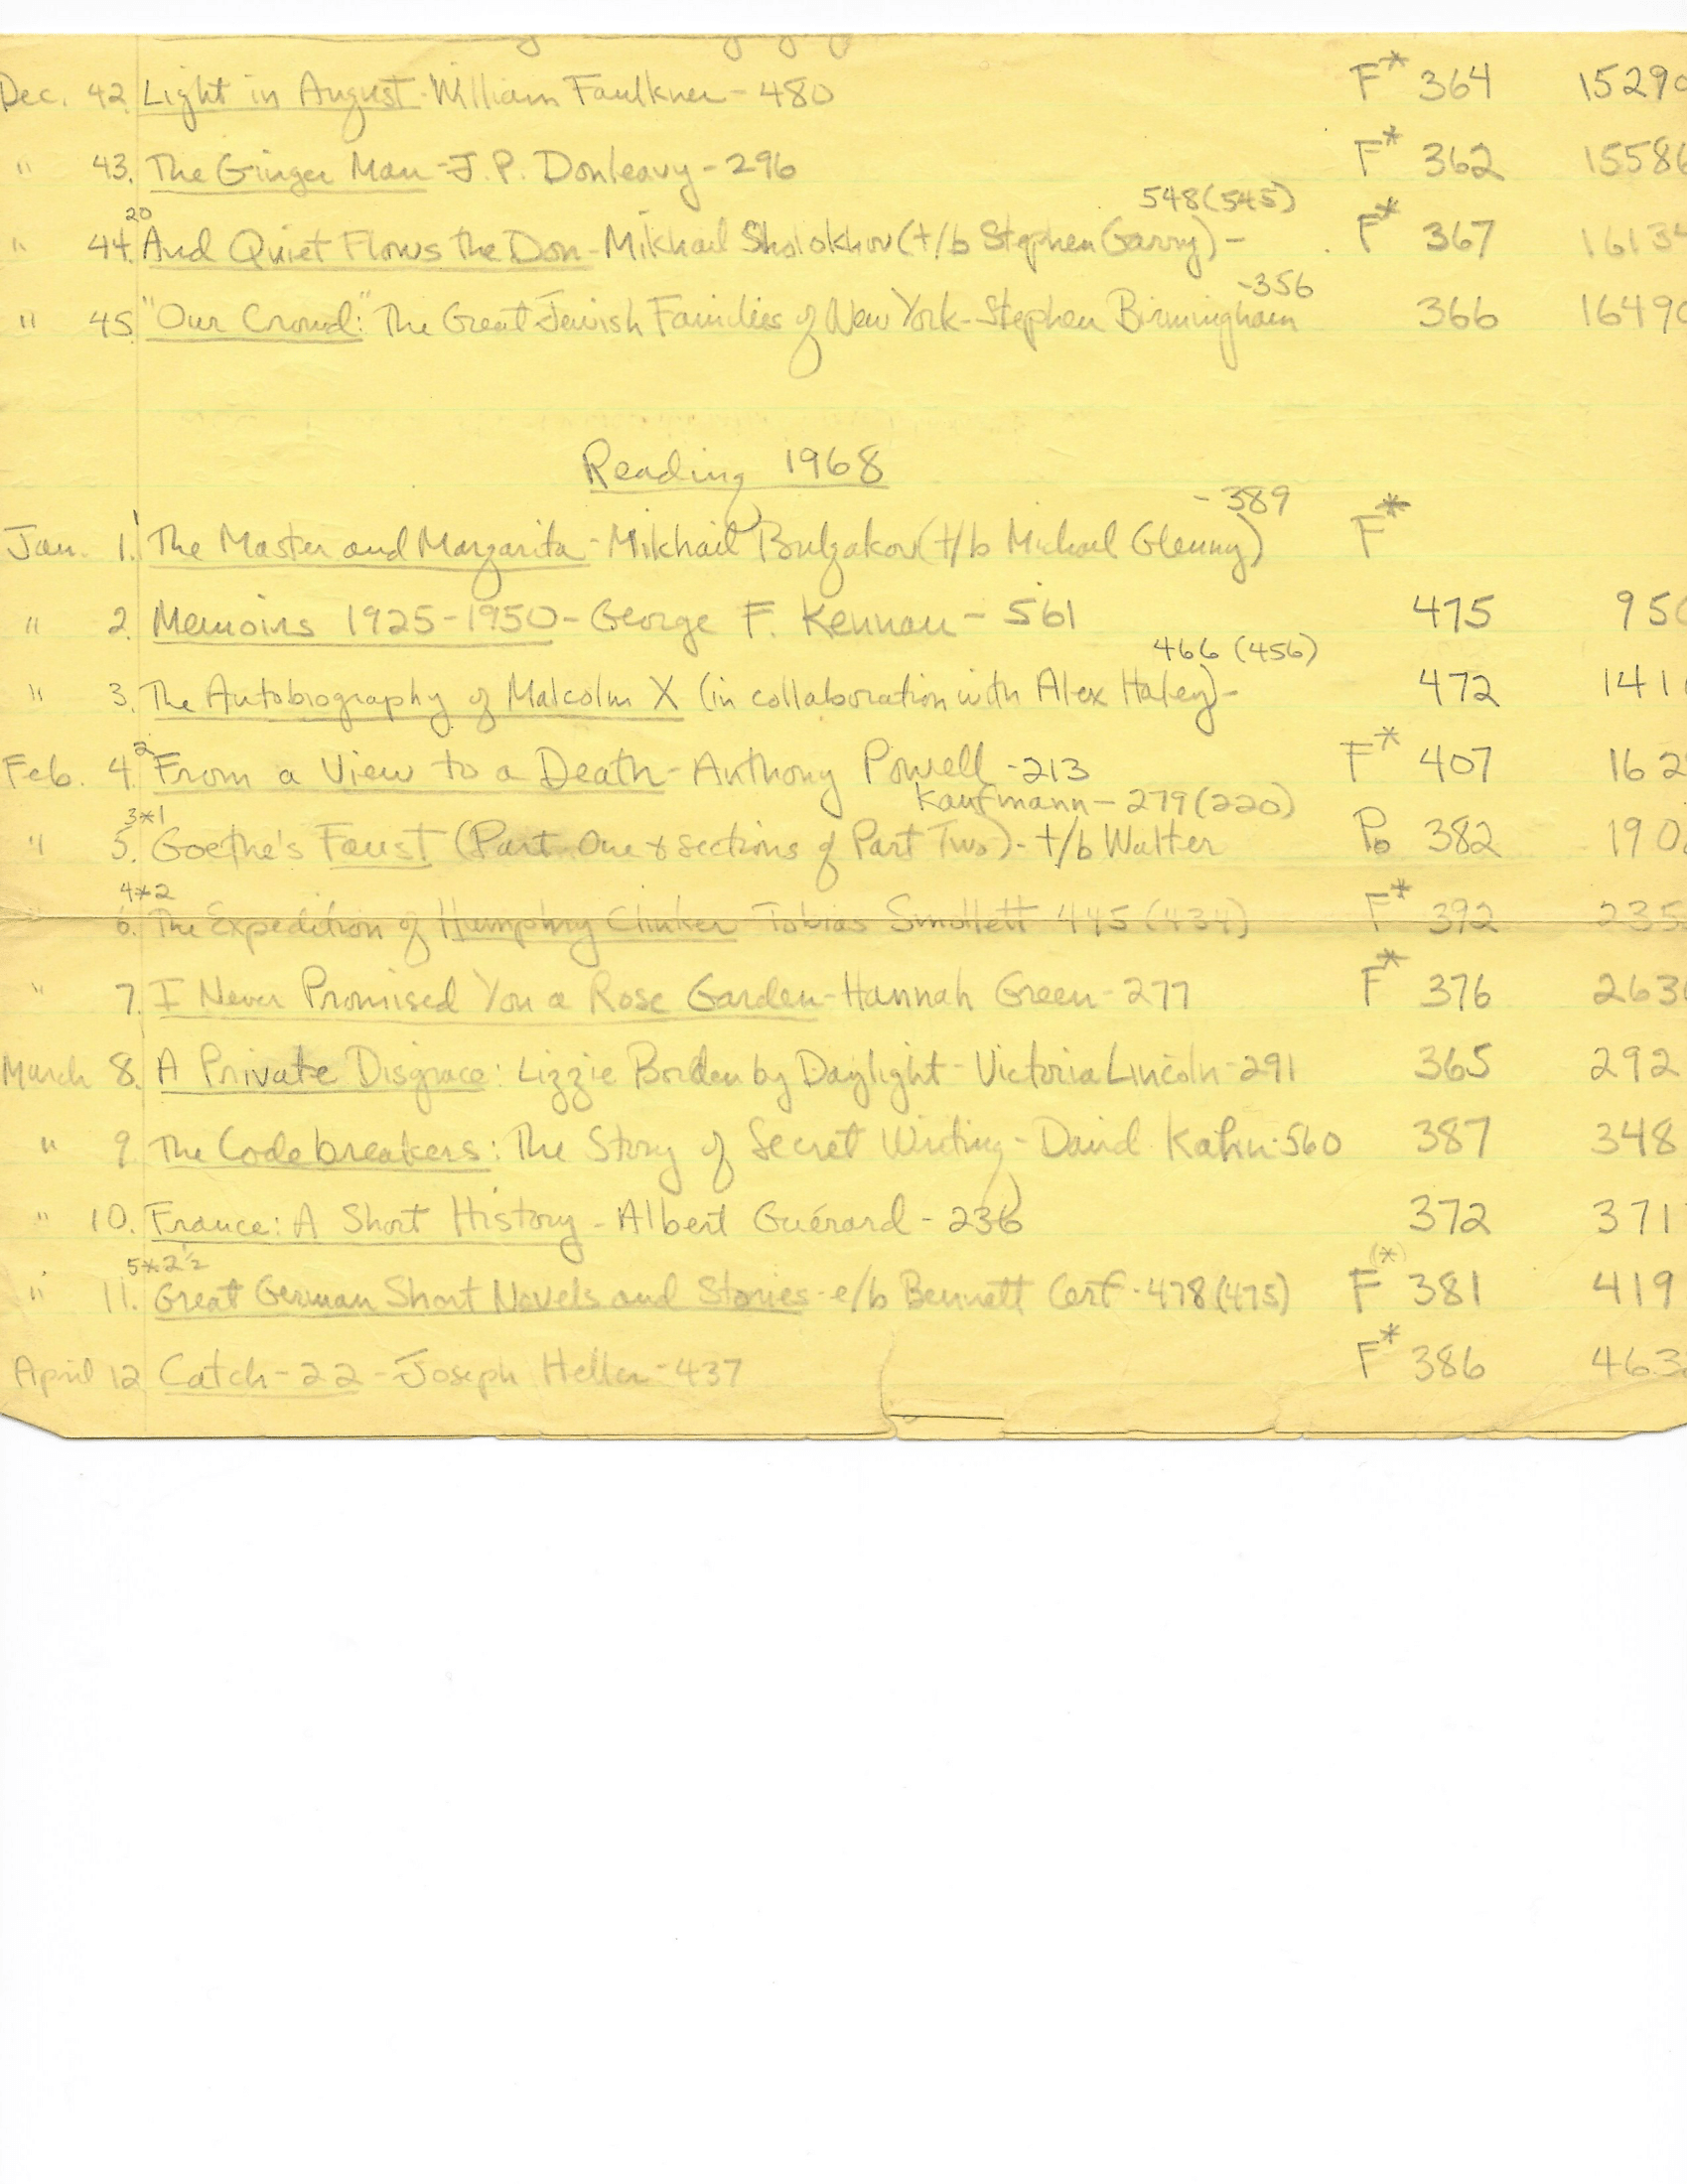 Dec. 42. Light in August - William Faulkner - 480 F* 364 15290
" 43. The Ginger Man - J. P. Donleavy - 296 F* 362 15586
548 (545)
" 44. 20 And Quiet Flows the Don - Mikhail Sholokhov (t/b Stephen Garry) - F* 367 16134
-356
" 45. "Our Crowd:" The Great Jewish Families of New York - Stephen Birmingham 366 16490
Reading 1968
-389
Jan. 1. 1 The Master and Margarita - Mikhail Bulgakov (t/b Michael Glenny) F*
" 2. Memoirs 1925-1950 - George F. Kennan - 561 475 950
466 (456)
" 3. The Autobiography of Malcolm X (in collaboration with Alex Haley) - 472 141
Feb. 4. 2 From a View to a Death - Anthony Powell - 213 F* 407 162
Kaufmann - 279 (220)
" 5. 3*1 Goethe's Faust (Part One & sections of Part Two) - t/b Walter Po 382 190
4*2
" 6. The Expedition of Humphry Clinker Tobias Smollett 445 (434) F* 392 235
" 7. I Never Promised You a Rose Garden - Hannah Green - 277 F* 376 263
March 8. A Private Disgrace: Lizzie Borden by Daylight - Victoria Lincoln - 291 365 292
" 9. The Codebreakers: The Story of Secret Writing - David Kahn - 560 387 348
" 10. France: A Short History - Albert Guérard - 236 372 371
5*2½ (*)
" 11. Great German Short Novels and Stories - e/b Bennett Cerf - 478 (475) F* 381 419
April 12 Catch-22 - Joseph Heller - 437 F* 386 463